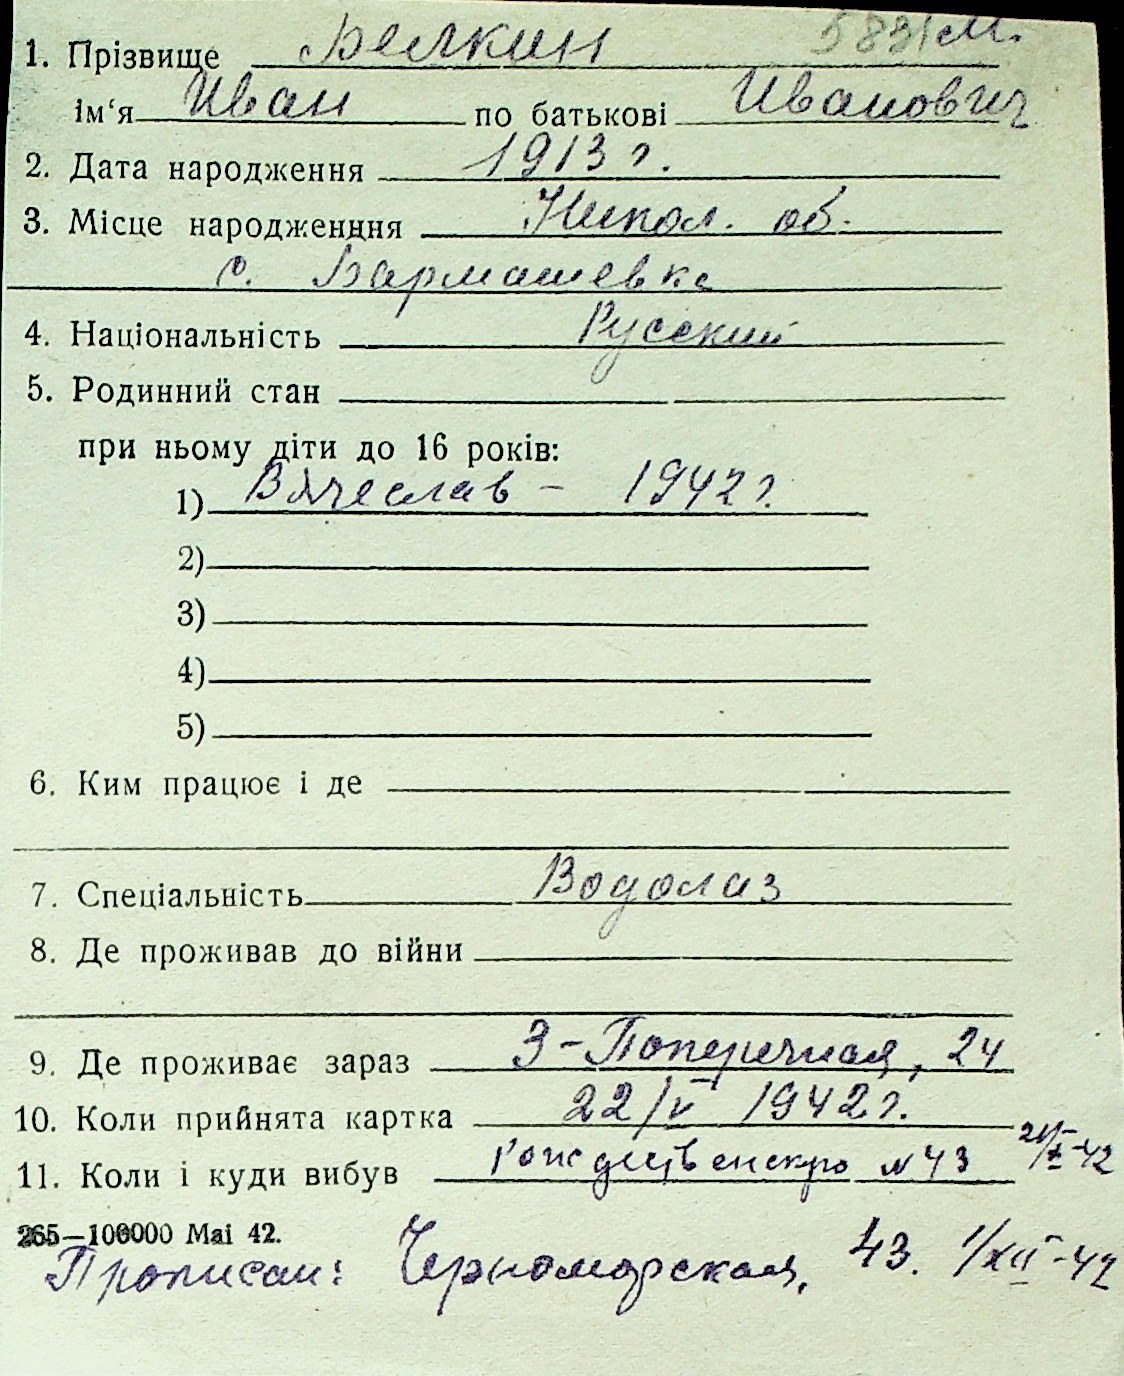 1. Прізвище Белкин 5831 м.
ім‘я Иван по батькові Иванович
2. Дата народження 1913 г.
3. Місце народженння Никол. об.
с. Бармашевка
4. Національність Русский
5. Родинний стан
при ньому діти до 16 років:
1) Вячеслав – 1942 г.
2)
3)
4)
5)
6. Ким працює і де
7. Спеціальність Водолаз
8. Де проживав до війни
9. Де проживає зараз 3-Поперечная, 24
10. Коли прийнята картка 22/V 1942 г.
11. Коли і куди вибув Рождественскую №43 21/X-42
265—100000 Mai 42.
Прописан: Черноморская, 43. 1/XII-42